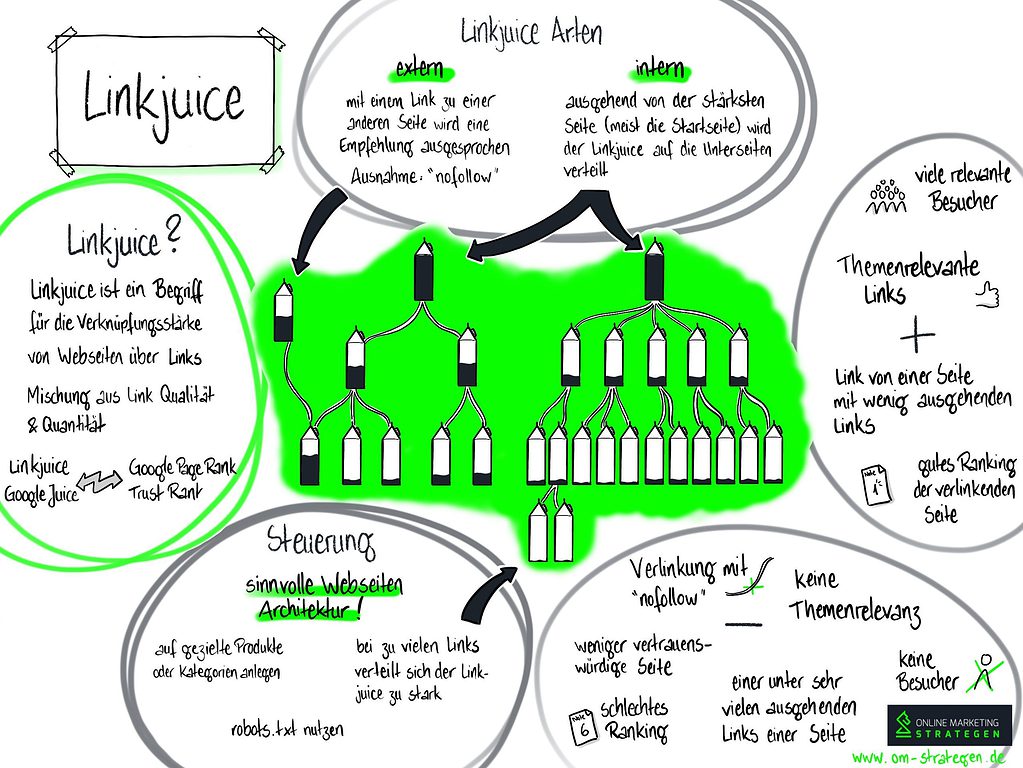 Linkjuice
Linkjuice Arten
extern
mit einem Link zu einer
anderen Seite wird eine
Empfehlung ausgesprochen
Ausnahme: "nofollow"
intern
ausgehend von der stärksten
Seite (meist die Startseite) wird
der Linkjuice auf die Unterseiten
verteilt
Linkjuice?
Linkjuice ist ein Begriff
für die Verknüpfungsstärke
von Webseiten über Links
Mischung aus Link Qualität
& Quantität
Linkjuice
Google Juice
Google Page Rank
Trust Rank
viele relevante
Besucher
Themenrelevante
Links
+
Link von einer Seite
mit wenig ausgehenden
Links
Note
1-
gutes Ranking
der verlinkenden
Seite
Steuerung
sinnvolle Webseiten
Architektur!
auf gezielte Produkte
oder Kategorien anlegen
bei zu vielen Links
verteilt sich der Link-
juice zu stark
robots.txt nutzen
Verlinkung mit
"nofollow"
keine
Themenrelevanz
–
weniger vertrauens-
würdige Seite
Note
6
schlechtes
Ranking
einer unter sehr
vielen ausgehenden
Links einer Seite
keine
Besucher
ONLINE MARKETING
STRATEGEN
www.om-strategen.de